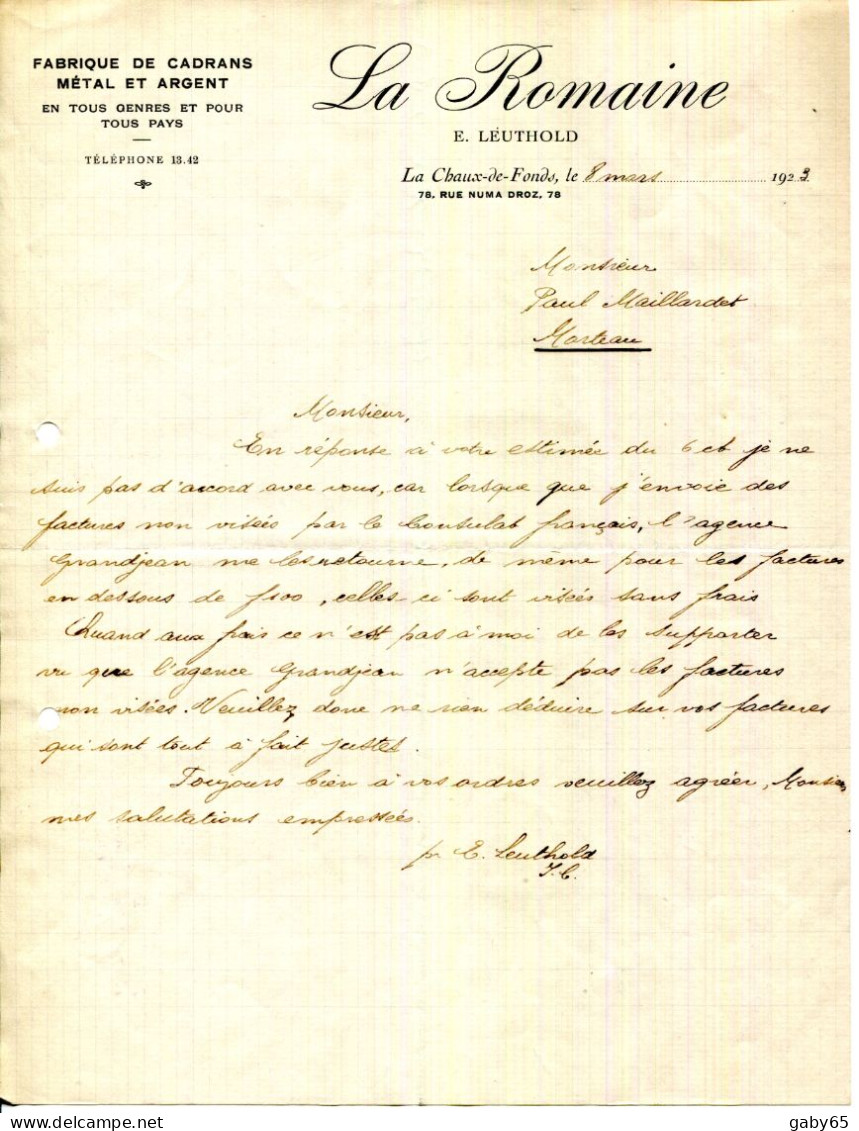 FABRIQUE DE CADRANS
MÉTAL ET ARGENT
EN TOUS GENRES ET POUR
TOUS PAYS
TÉLÉPHONE 13.42
La Romaine
E. LÉUTHOLD
La Chaux-de-Fonds, le 8 mars 1923
78, RUE NUMA DROZ, 78
Monsieur
Paul Maillardet
Morteau
Monsieur,
En réponse à votre estimée du 6 ct je ne
suis pas d'accord avec vous, car lorsque que j'envoie des
factures non visées par le Consulat français, l'agence
Grandjean me les retourne, de même pour les factures
en dessous de f 100, celles-ci sont visées sans frais
Quand aux frais ce n'est pas à moi de les supporter
vu que l'agence Grandjean n'accepte pas les factures
non visées. Veuillez donc ne rien déduire sur vos factures
qui sont tout à fait justes.
Toujours bien à vos ordres veuillez agréer, Monsieur
mes salutations empressées.
pr E. Leuthold
gaby65